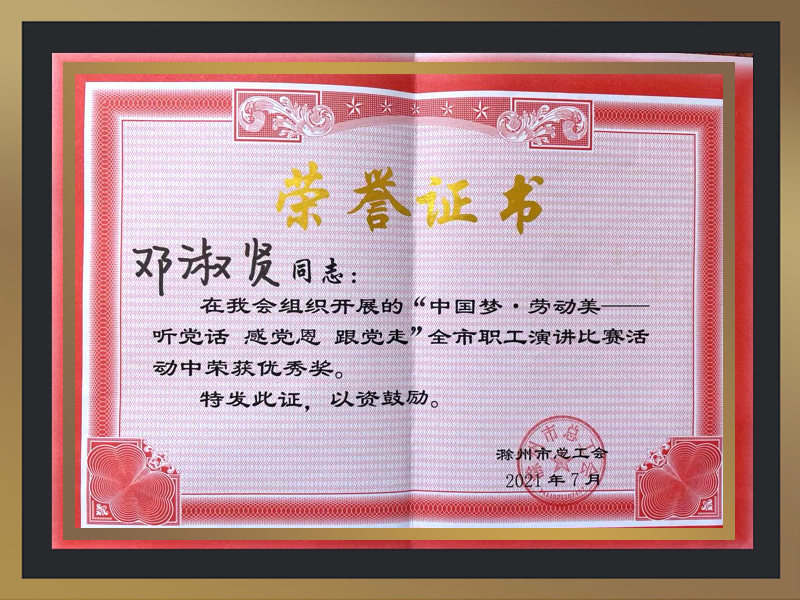 荣誉证书
邓淑贤同志：
在我会组织开展的“中国梦·劳动美——
听党话 感党恩 跟党走”全市职工演讲比赛活
动中荣获优秀奖。
特发此证，以资鼓励。
滁州市总工会
2021年7月
滁州市总工会